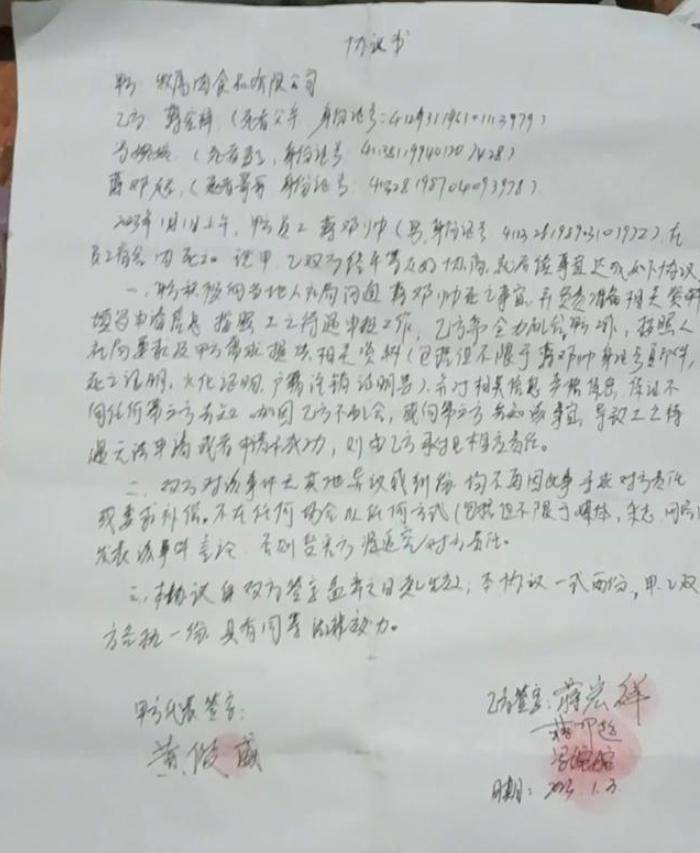 协议书
甲方:牧原肉食品有限公司
乙方:蒋宏祥(死者父亲 身份证号:
(死者妻),身份证号
蒋邓超,(死者哥哥 身份证号:
2023年1月1日上午,甲方员工蒋邓帅(男,身份证号 在
员工宿舍内死亡。现甲、乙双方经平等友好协商,就后续事宜达成如下协议
一、甲方积极向当地人社局沟通蒋邓帅死亡事宜,并负责准备相关资料
填写申请信息 按照工亡待遇申报工作,乙方需全力配合甲方工作,按照人
社局要求及甲方需求提供相关资料(包括但不限于蒋邓帅身份证原件,
死亡证明、火化证明、户籍注销证明等),并对相关信息严格保密,保证不
向任何第三方告知。如因乙方不配合,或向第三方告知该事宜,导致工亡待
遇无法申请或者申请不成功,则由乙方承担相应责任。
二、双方对该事件无其他异议或纠纷,均不再因此事寻求对方责任
或要求补偿。不在任何场合以任何方式(包括但不限于媒体,杂志,网络)
发表该事件言论,否则 对方责任。
三、本协议自双方签字盖章之日起生效,本协议一式两份,甲、乙双
方各执一份,具有同等法律效力。
甲方代表签字:
黄俊威
乙方签字:蒋宏祥
蒋邓超
日期:2023.1.3